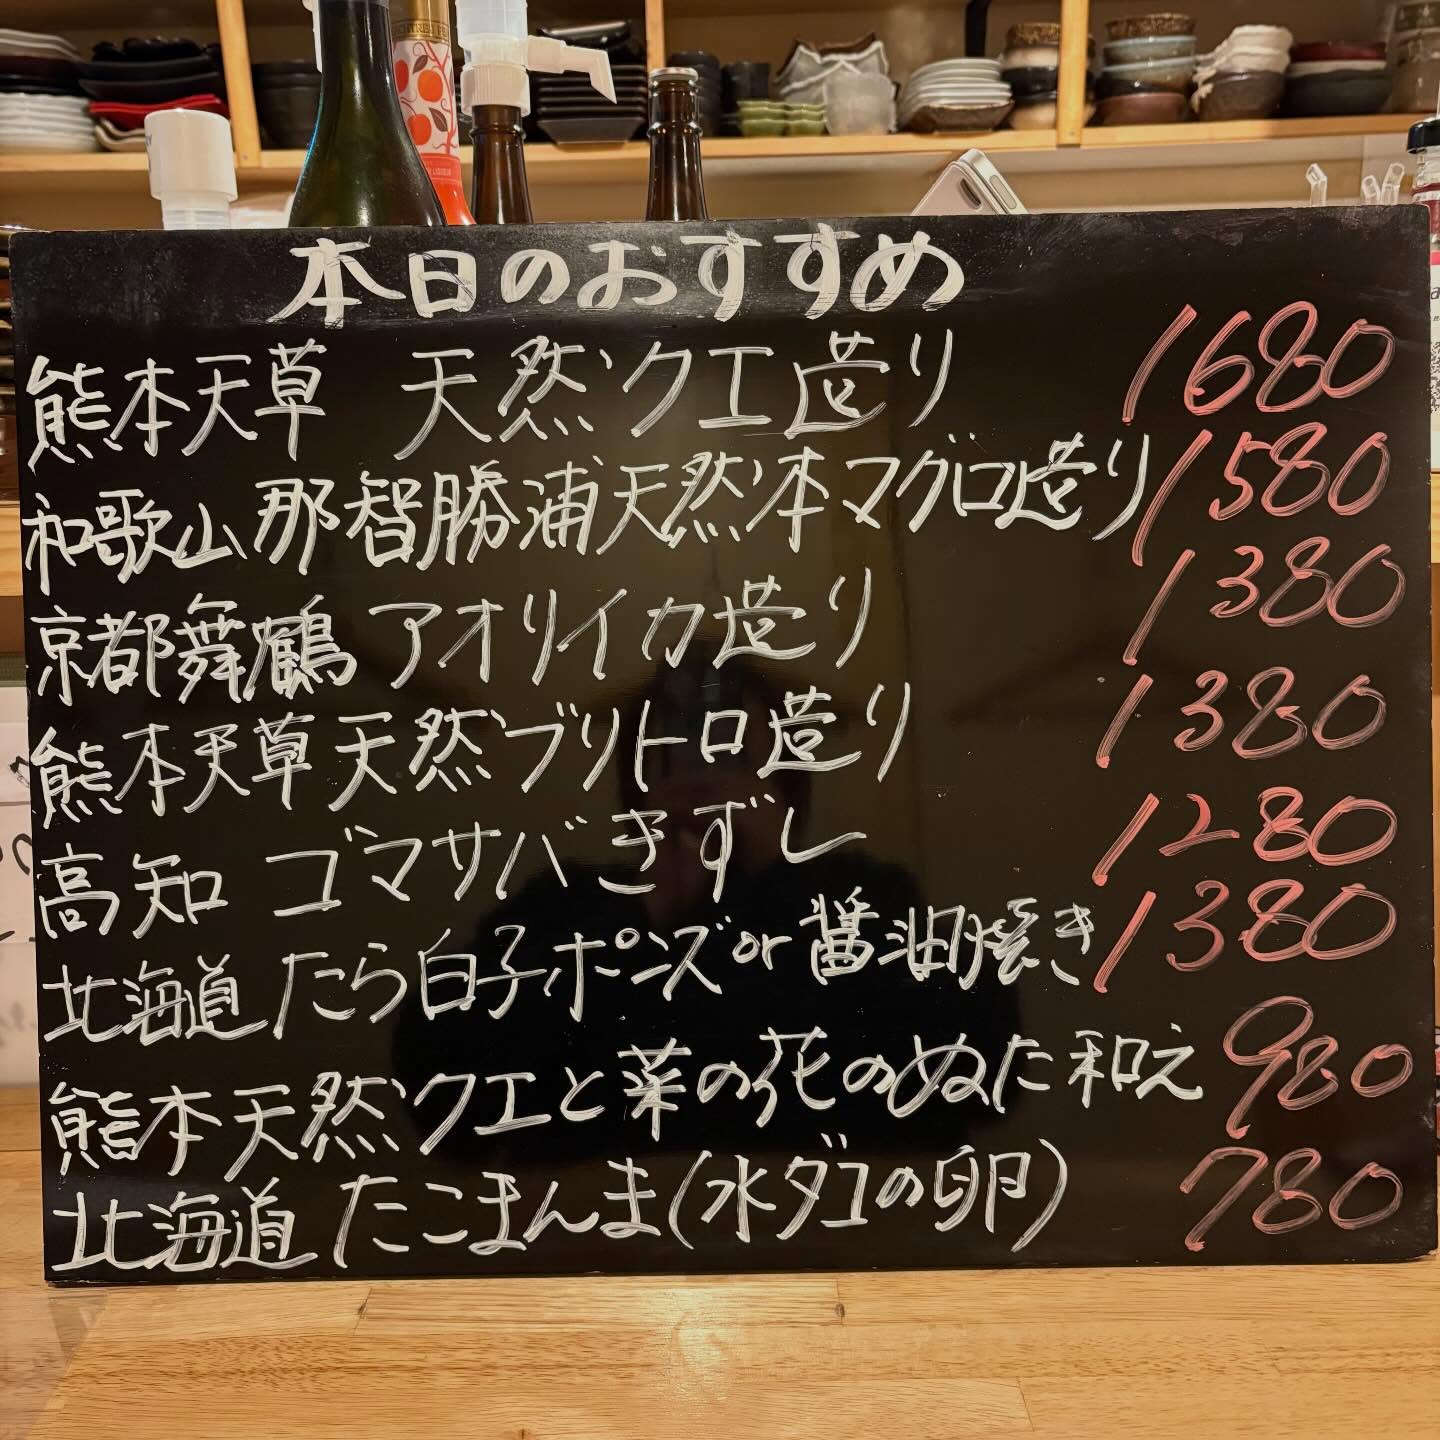 本日のおすすめ
熊本天草 天然クエ造り 1680
和歌山 那智勝浦天然本マグロ造り 1580
京都舞鶴 アオリイカ造り 1380
熊本天草天然ブリトロ造り 1380
高知 ゴマサバきずし 1280
北海道 たら白子ポンズor醤油焼き 1380
熊本天然クエと菜の花のぬた和え 980
北海道 たこまんま(水ダコの卵) 780